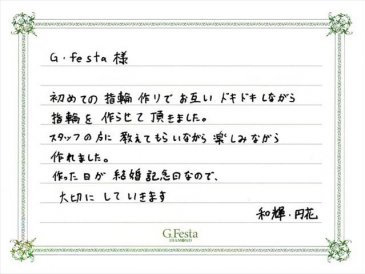 G.festa 様
初めての 指輪 作りで お互い ドキドキしながら
指輪を 作らせて 頂きました。
スタッフの方に 教えてもらいながら 楽しみながら
作れました。
作った日が 結婚記念日なので、
大切に して いきます
和輝・円花
G.Festa
DIAMOND